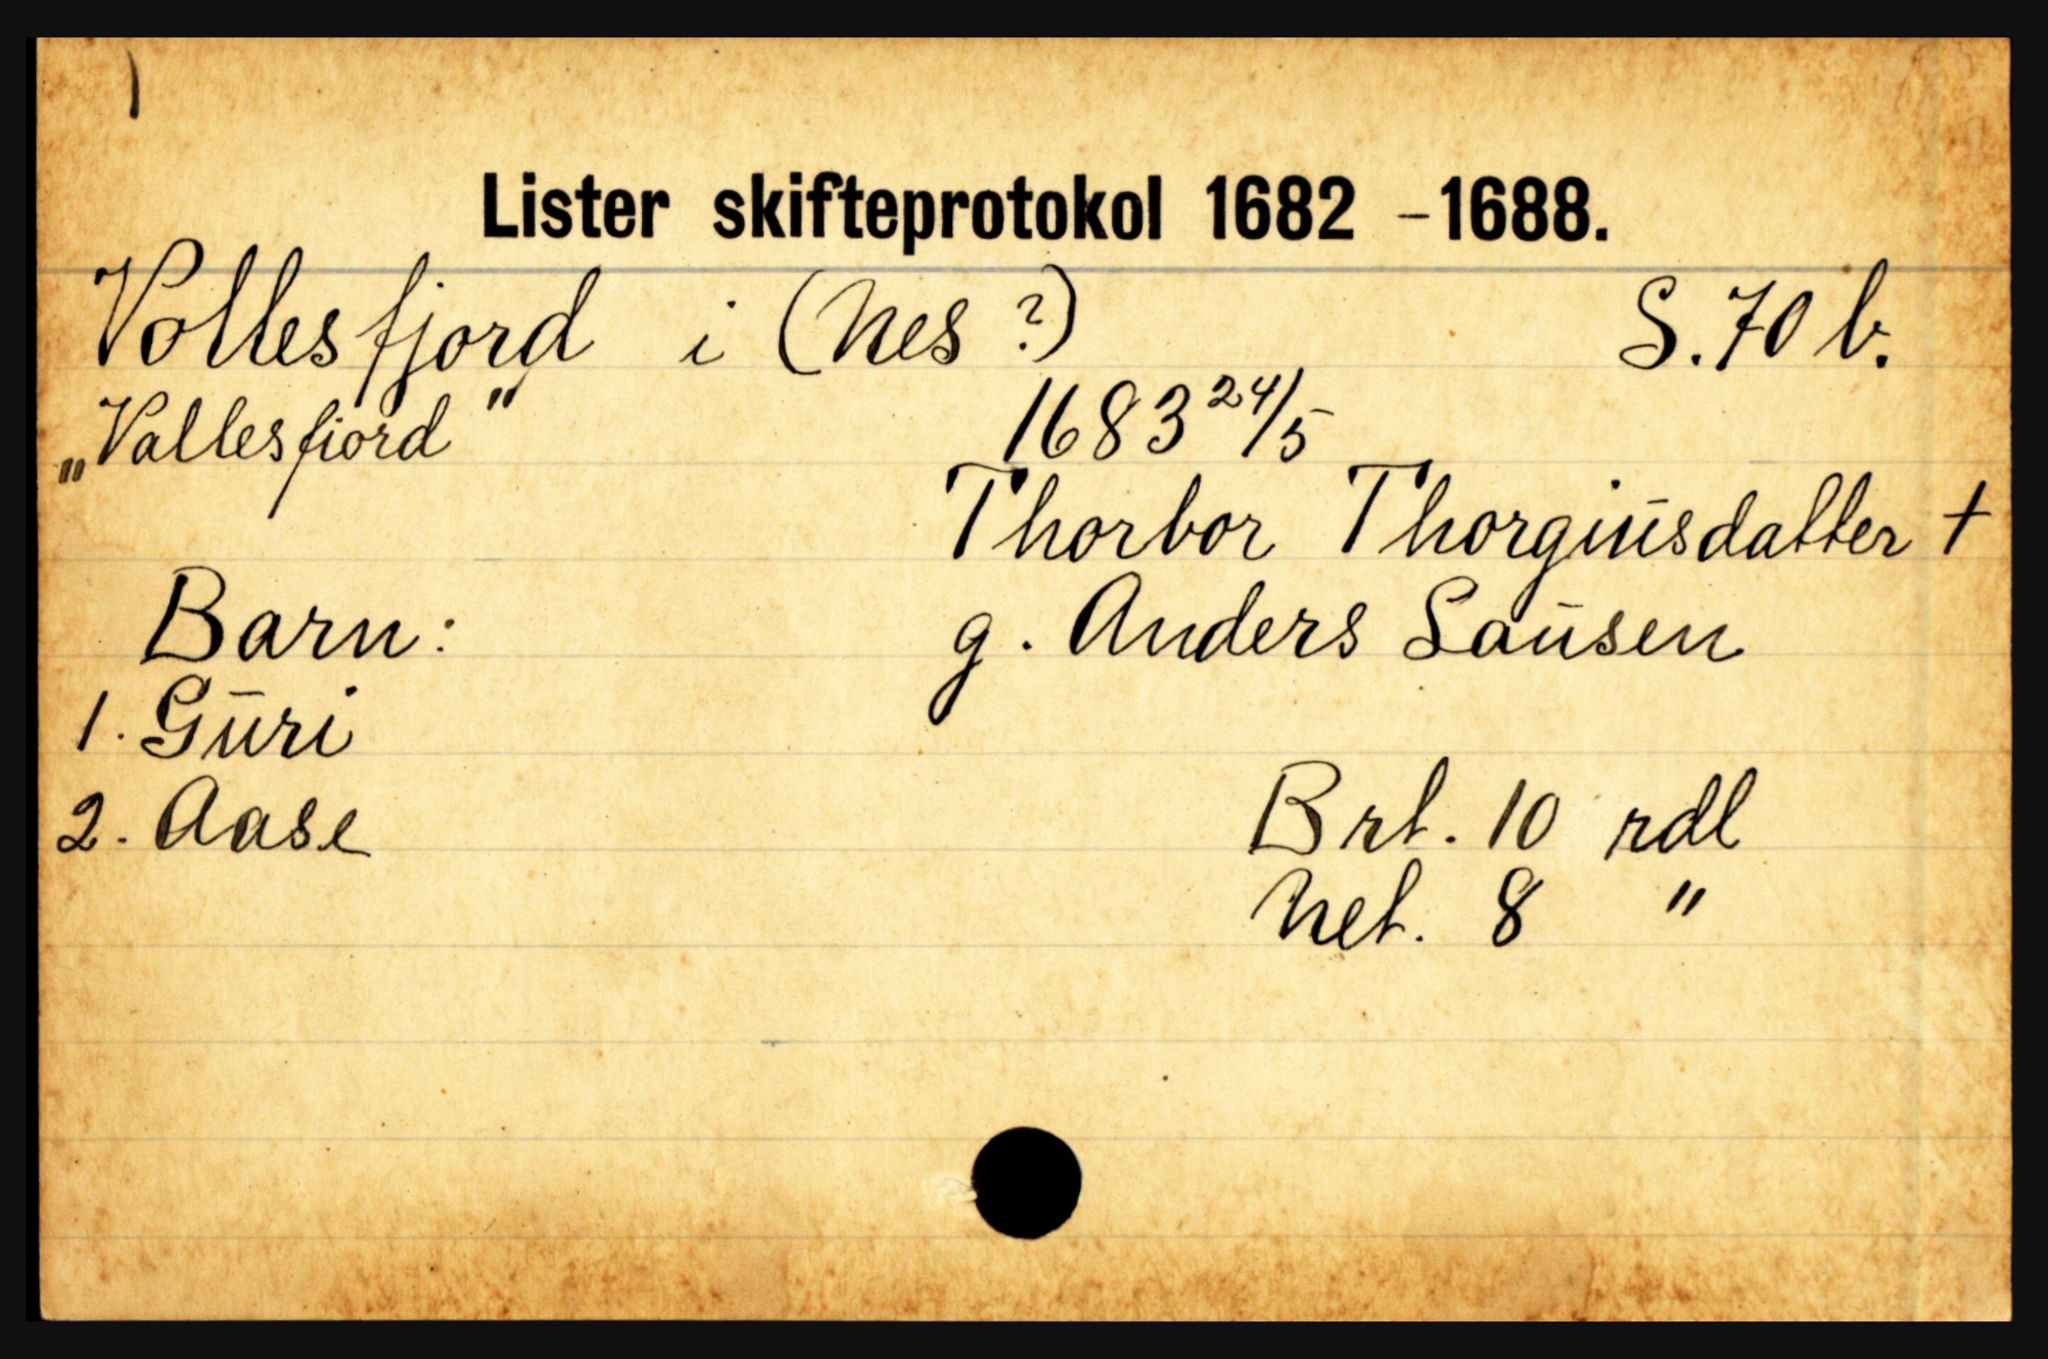 Lister skifteprotokol 1682 - 1688.
Vollesfjord i (Nes ?) S. 70 b.
„Vallesfiord" 1683 24/5
Thorbor Thorgiusdatter +
Barn: g. Anders Lausen
1. Guri
2. Aase Brt. 10 rdl
Net. 8 "